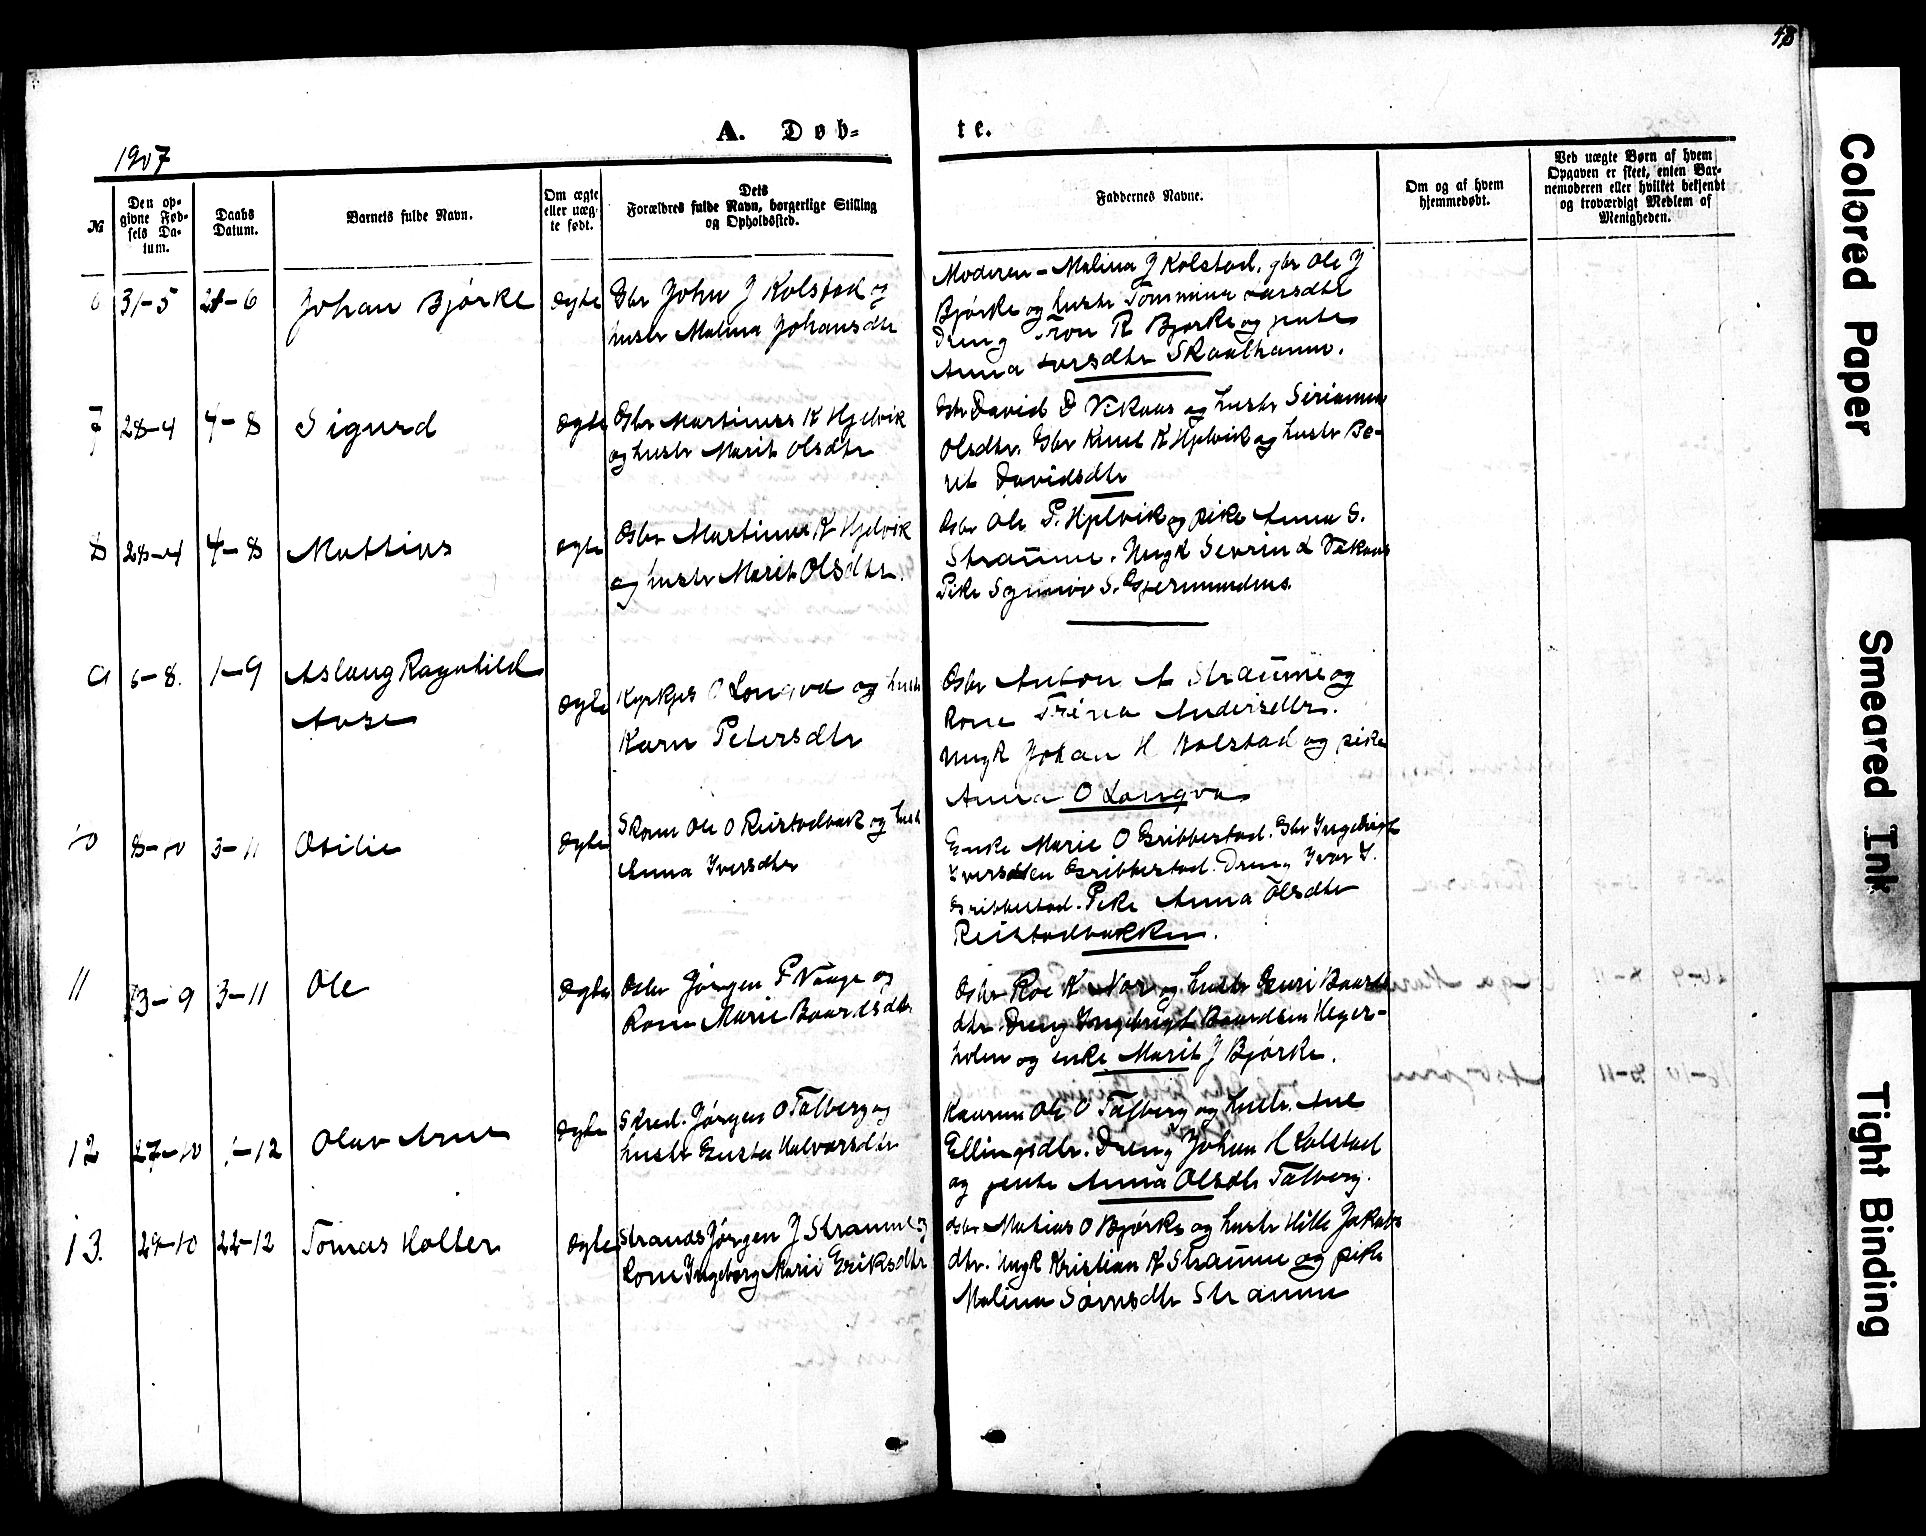 48
A. Døb-
te.
1907
№
Den op-
givne Fød-
sels Da-
tum.
Daabs
Datum.
Barnets fulde Navn.
Om ægte
eller uæg-
te født.
Dets
Forældres fulde Navn, borgerlige Stilling
og Opholdssted.
Faddernes Navne.
Om og af hvem
hjemmedøbt.
Ved uægte Børn af hvem
Opgaven er skeet, enten Bar-
nemoderen eller hvilket bekjendt
og troværdigt Medlem af
Menigheden.
6 31-5 28-6 Johan Bjørke ægte Gbr John J Kolstad og
hustr Malina Johansdtr
Moderen - Malina J Kolstad, gbr Ole J
Bjørke og hustr Tommine Larsdtr
Dreng Tron R Bjørke og jente
Anna Larsdtr Skaalhamn.
7 28-4 4-8 Sigurd ægte Gbr Martinus K Hjelvik
og hustr Marit Olsdtr
Gbr David D Vikaas og hustr Serianna
Olsdtr. Gbr Knut K Hjelvik og hustr Be-
ret Davidsdtr
8 28-4 4-8 Mattias ægte Gbr Martinus K Hjelvik
og hustr Marit Olsdtr.
Gbr Ole P. Hjelvik og pike Anna S.
Straume. Ungk Severin L Vikaas
Pike Synnøv S. Gjermundnes.
9 6-8. 1-9 Aslaug Ragnhild
Aase
ægte Kyrkjes O Longva og hustr
Karn Petersdtr
Gbr Anton A Straume og
kone Trina Andersdtr.
Ungk Johan H Kolstad og pike
Anna O Longva
10 8-10 3-11 Otilie ægte Skom Ole O Reistadbak og hustr
Anna Iversdtr
Enke Marie O Gribbestad. Gbr Ingebrigt
Iversen Gribbestad. Dreng Ivar I.
Gribbestad. Pike Anna Olsdtr
Reistadbakken.
11 13-9 3-11 Ole ægte Gbr Jørgen P Vaage og
Kone Marie Baardsdtr
Gbr Roe K Vor og hustr Guri Baards
dtr Dreng Ingebrigt Baardsen Heger-
holm og enke Marit J Bjørke.
12 27-10 1-12 Olav Arne ægte Skred. Jørgen O Talberg og
hustr Gusta Halvarsdtr
Kaarm Ole O Talberg og hustr. Ane
Ellingsdtr. Dreng Johan H Kolstad
og jente Anna Olsdtr Talberg.
13. 29-10 22-12 Tomas Holter ægte Strands Jørgen J Straume og
Kone Ingeborg Marie Eriksdtr
Gbr Matias O Bjørke og hustr Hille Jakobs
dtr. Ungk Kristian K Straume og pike
Malina Sørnsdtr Straume
Colored Paper
Smeared Ink
Tight Binding